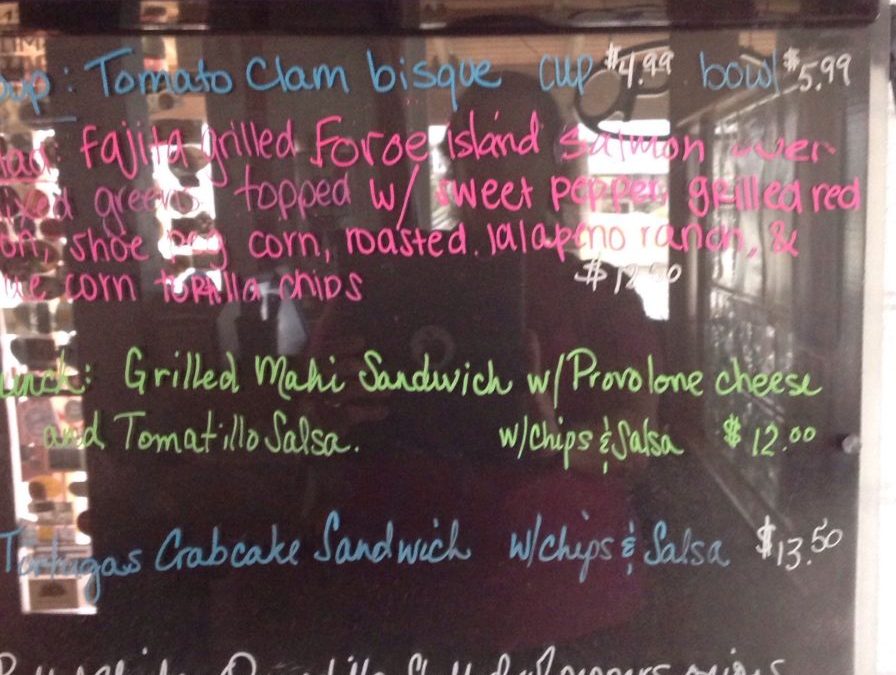 oup: Tomato Clam bisque cup $4.99 bowl $5.99
lad: Fajita grilled Foroe island Salmon over
ixed greens topped w/ sweet pepper, grilled red
on, shoe peg corn, roasted jalapeno ranch, &
lue corn tortilla chips $12.50
unch: Grilled Mahi Sandwich w/ Provolone cheese
and Tomatillo Salsa. w/chips & Salsa $12.00
Tortugas Crabcake Sandwich w/chips & Salsa $13.50